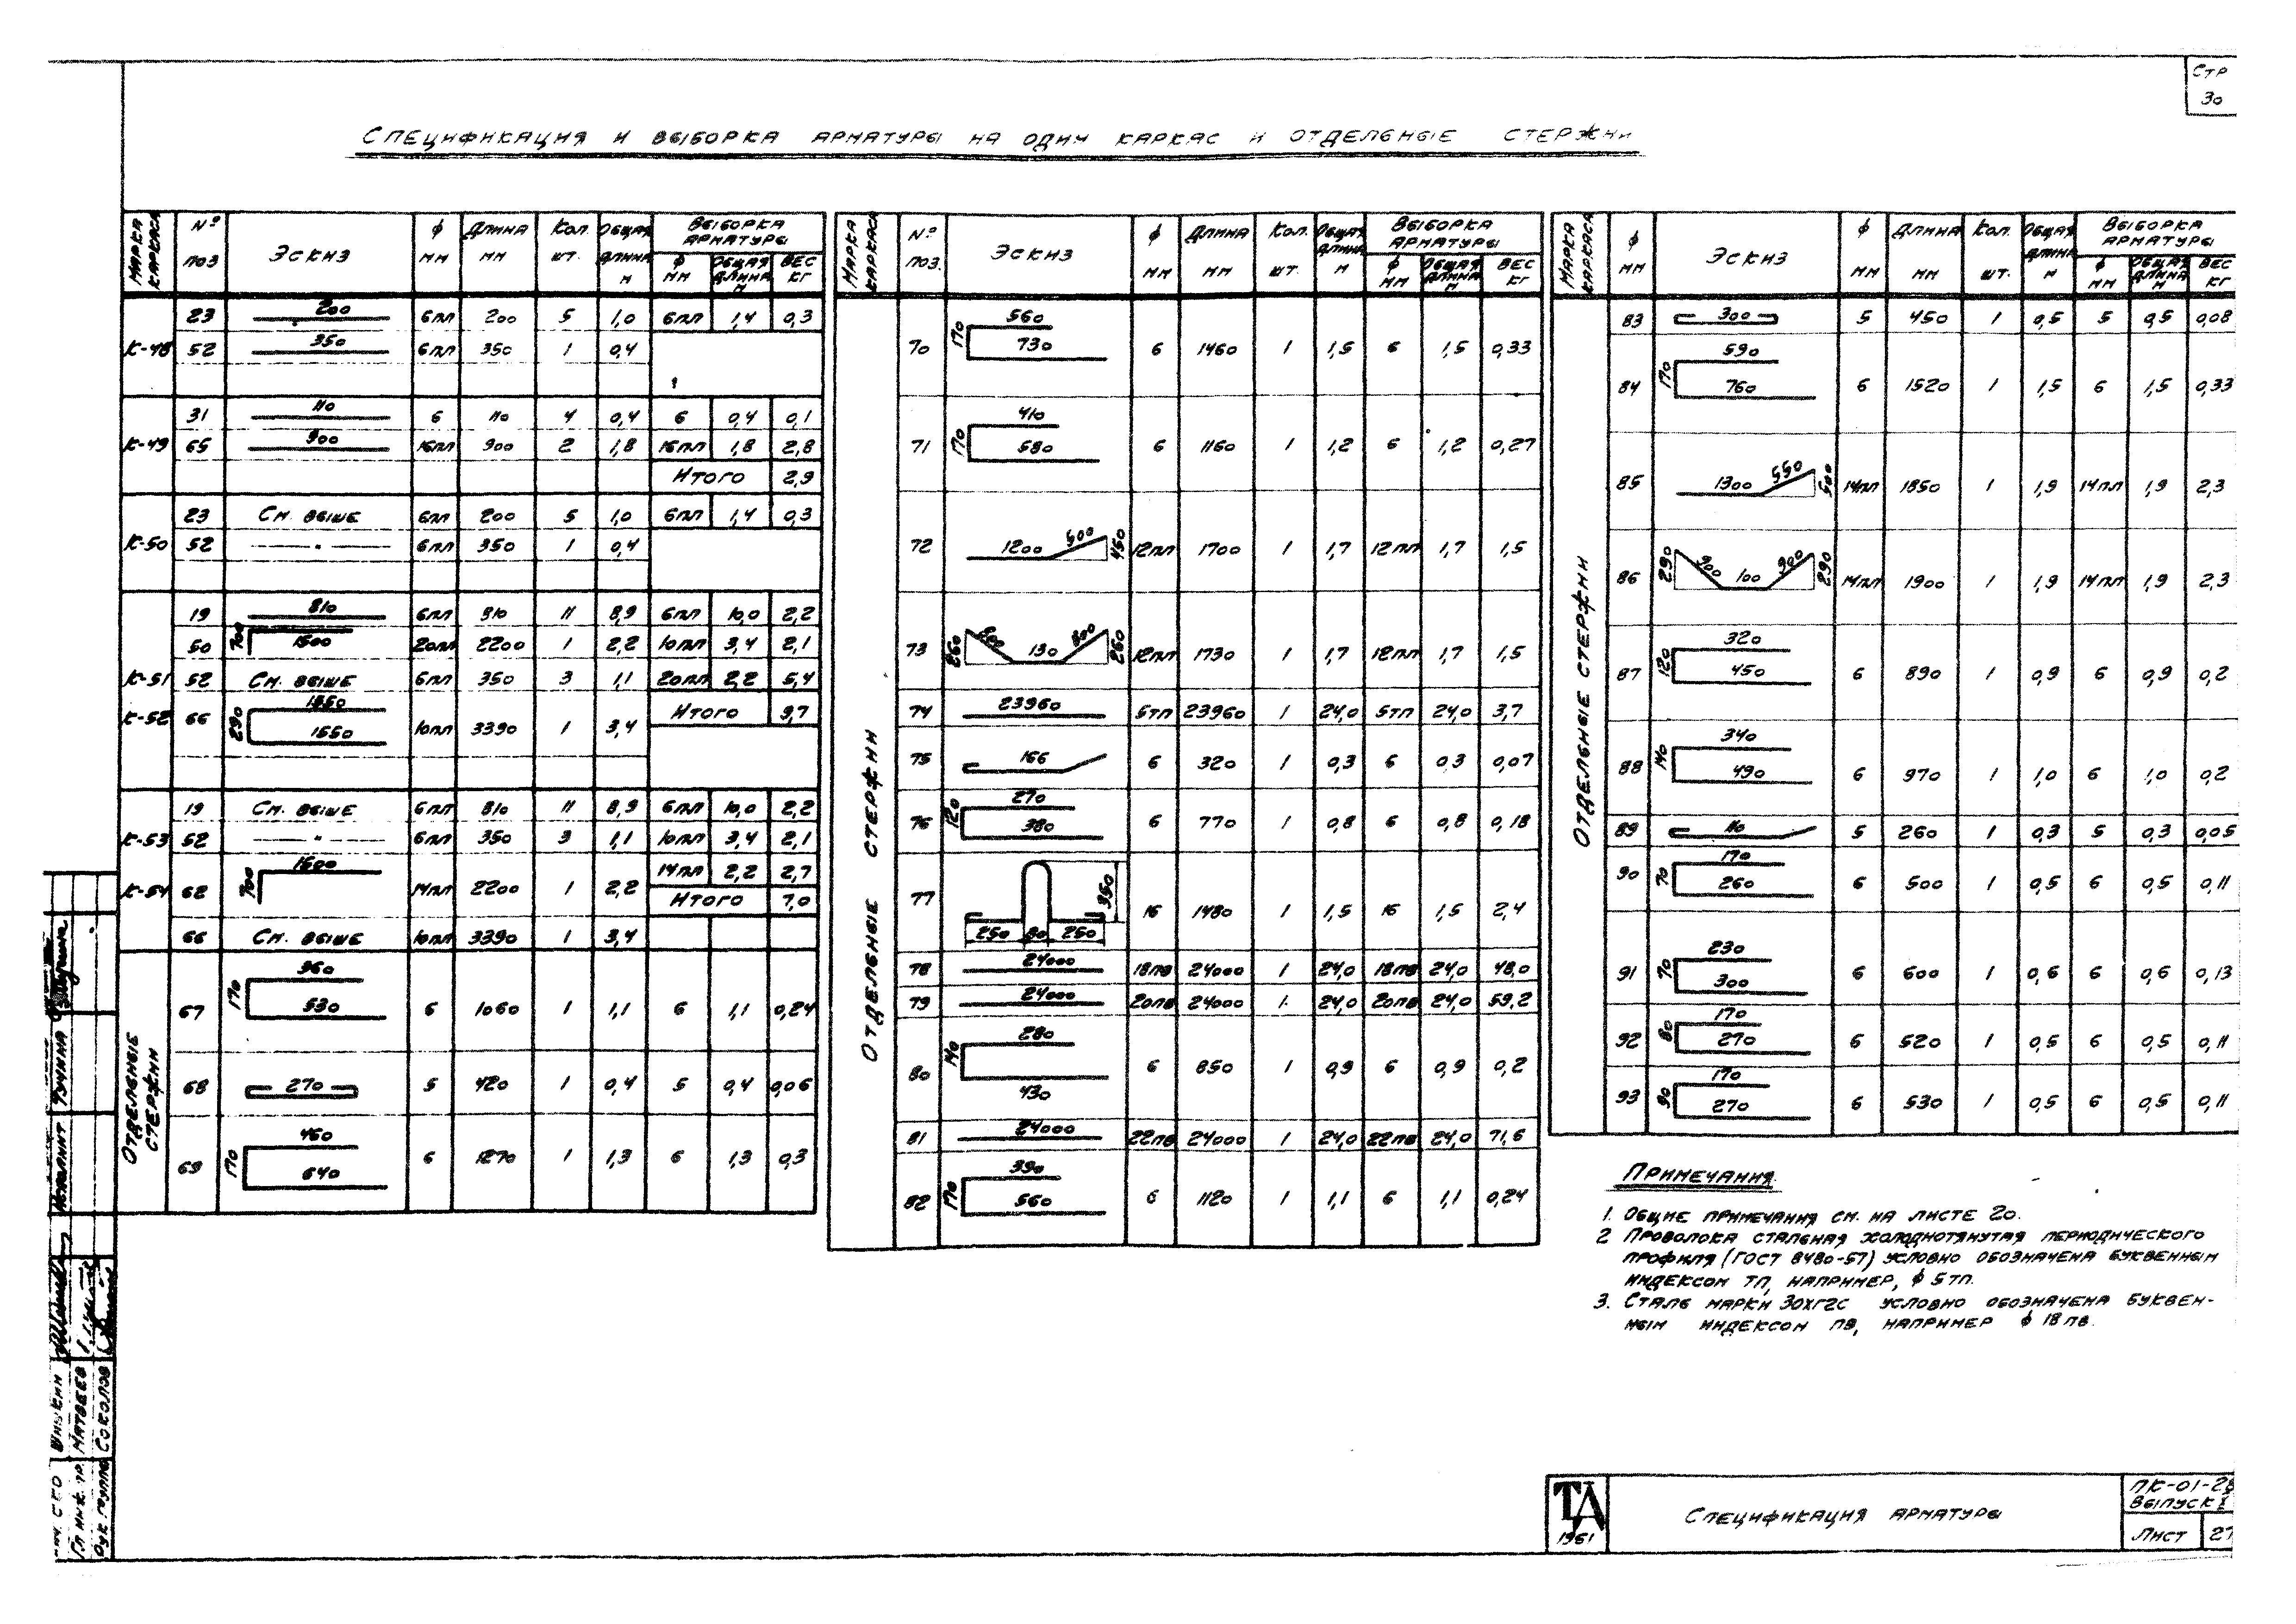 Стр
30
Спецификация и выборка арматуры на один каркас и отдельные стержни
Марка каркаса № поз Эскиз ф мм Длина мм Кол. шт. Общая длина м Выборка арматуры ф мм Общая длина м Вес кг
К-48
23 200 6пл 200 5 1,0 6пл 1,4 0,3
52 350 6пл 350 1 0,4
К-49
31 110 6 110 4 0,4 6 0,4 0,1
65 900 16пл 900 2 1,8 16пл 1,8 2,8
Итого 2,9
К-50
23 См. выше 6пл 200 5 1,0 6пл 1,4 0,3
52 —"— 6пл 350 1 0,4
К-51
К-52
19 810 6пл 810 11 8,9 6пл 10,0 2,2
50 700 1500 20пл 2200 1 2,2 10пл 3,4 2,1
52 См. выше 6пл 350 3 1,1 20пл 2,2 5,4
Итого 9,7
66 290 1550 1550 10пл 3390 1 3,4
К-53
К-54
19 См. выше 6пл 810 11 8,9 6пл 10,0 2,2
52 —"— 6пл 350 3 1,1 10пл 3,4 2,1
62 700 1500 14пл 2200 1 2,2 14пл 2,2 2,7
Итого 7,0
66 См. выше 10пл 3390 1 3,4
Отдельные стержни
67 170 360 530 6 1060 1 1,1 6 1,1 0,24
68 270 5 420 1 0,4 5 0,4 0,06
69 170 460 640 6 1270 1 1,3 6 1,3 0,3
Марка каркаса № поз. Эскиз ф мм Длина мм Кол. шт. Общая длина м Выборка арматуры ф мм Общая длина м Вес кг
Отдельные стержни
70 170 560 730 6 1460 1 1,5 6 1,5 0,33
71 170 410 580 6 1160 1 1,2 6 1,2 0,27
72 1200 500 450 12пл 1700 1 1,7 12пл 1,7 1,5
73 260 800 130 800 260 12пл 1730 1 1,7 12пл 1,7 1,5
74 23960 5тп 23960 1 24,0 5тп 24,0 3,7
75 166 6 320 1 0,3 6 0,3 0,07
76 120 270 380 6 770 1 0,8 6 0,8 0,18
77 350 250 80 250 16 1480 1 1,5 16 1,5 2,4
78 24000 18пв 24000 1 24,0 18пв 24,0 48,0
79 24000 20пв 24000 1. 24,0 20пв 24,0 59,2
80 140 280 430 6 850 1 0,9 6 0,9 0,2
81 24000 22пв 24000 1 24,0 22пв 24,0 71,6
82 170 390 560 6 1120 1 1,1 6 1,1 0,24
Марка каркаса ф мм Эскиз ф мм Длина мм Кол. шт. Общая длина м Выборка арматуры ф мм Общая длина м Вес кг
Отдельные стержни
83 300 5 450 1 0,5 5 0,5 0,08
84 170 590 760 6 1520 1 1,5 6 1,5 0,33
85 1300 550 500 14пл 1850 1 1,9 14пл 1,9 2,3
86 290 900 100 900 290 14пл 1900 1 1,9 14пл 1,9 2,3
87 120 320 450 6 890 1 0,9 6 0,9 0,2
88 140 340 490 6 970 1 1,0 6 1,0 0,2
89 110 5 260 1 0,3 5 0,3 0,05
90 70 170 260 6 500 1 0,5 6 0,5 0,11
91 70 230 300 6 600 1 0,6 6 0,6 0,13
92 80 170 270 6 520 1 0,5 6 0,5 0,11
93 90 170 270 6 530 1 0,5 6 0,5 0,11
Примечания
1. Общие примечания см. на листе 20.
2 Проволока стальная холоднотянутая периодического
профиля (ГОСТ 8480-57) условно обозначена буквенным
индексом тп, например, ф 5тп.
3. Сталь марки 30ХГ2С условно обозначена буквен-
ным индексом пв, например ф 18пв.
ТА
1961
Спецификация арматуры
ПК-01-28
Выпуск I
Лист 27
Шишкин
Гл инж. пр. Матвеев
Рук группы Соколов